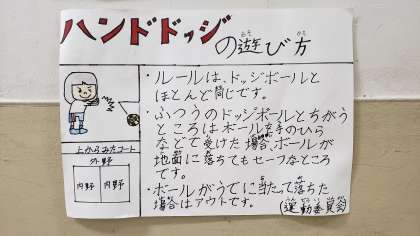 ハンドドッジの遊び方
・ルールは、ドッジボールと
ほとんど同じです。
・ふつうのドッジボールとちがう
ところは ボール を手のひら
などで受けた場合、ボールが
地面に落ちてもセーフなところ
です。
・ボールがうでに当たって落ちた
場合はアウトです。
(運動委員会)
上からみたコート
外野
内野 内野